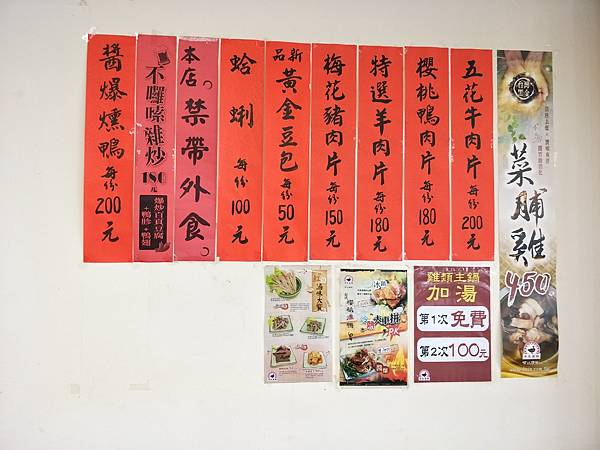 醬爆燻鴨 每份200元
不囉嗦雜炒
180元
爆炒百頁豆腐
+鴨胗+鴨翅
本店。禁帶外食。
蛤蜊 每份100元
新品 黃金豆包 每份50元
梅花豬肉片 每份150元
特選羊肉片 每份180元
櫻桃鴨肉片 每份180元
五花牛肉片 每份200元
台灣黑金
菜脯雞
450
滷味大賞
冰鎮
PK
雞類主鍋
加湯
第1次 免費
第2次 100元